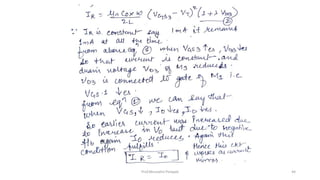 IR = μn Cox W (VGS3 - VT)² (1 + λ VDS3)
2·L
②
∵ IR is constant say 1mA it remains
1mA at all the time.
from above eq. ② when VGS3 ↑es, VDS3 ↓es
so that current is constant. and
drain voltage VD3 of M3 reduces.
VD3 is connected to gate of M1 i.e
VGS1 ↓es.
from eqⁿ ① we can say that
when VGS1 ↓, IO ↓es, IO ↓es.
So earlier current was increased due
to increase in VO but due to negative
f/b again IO reduces. Again this
condition fulfills
IR = IO
Hence this ckt
works as current
mirror.